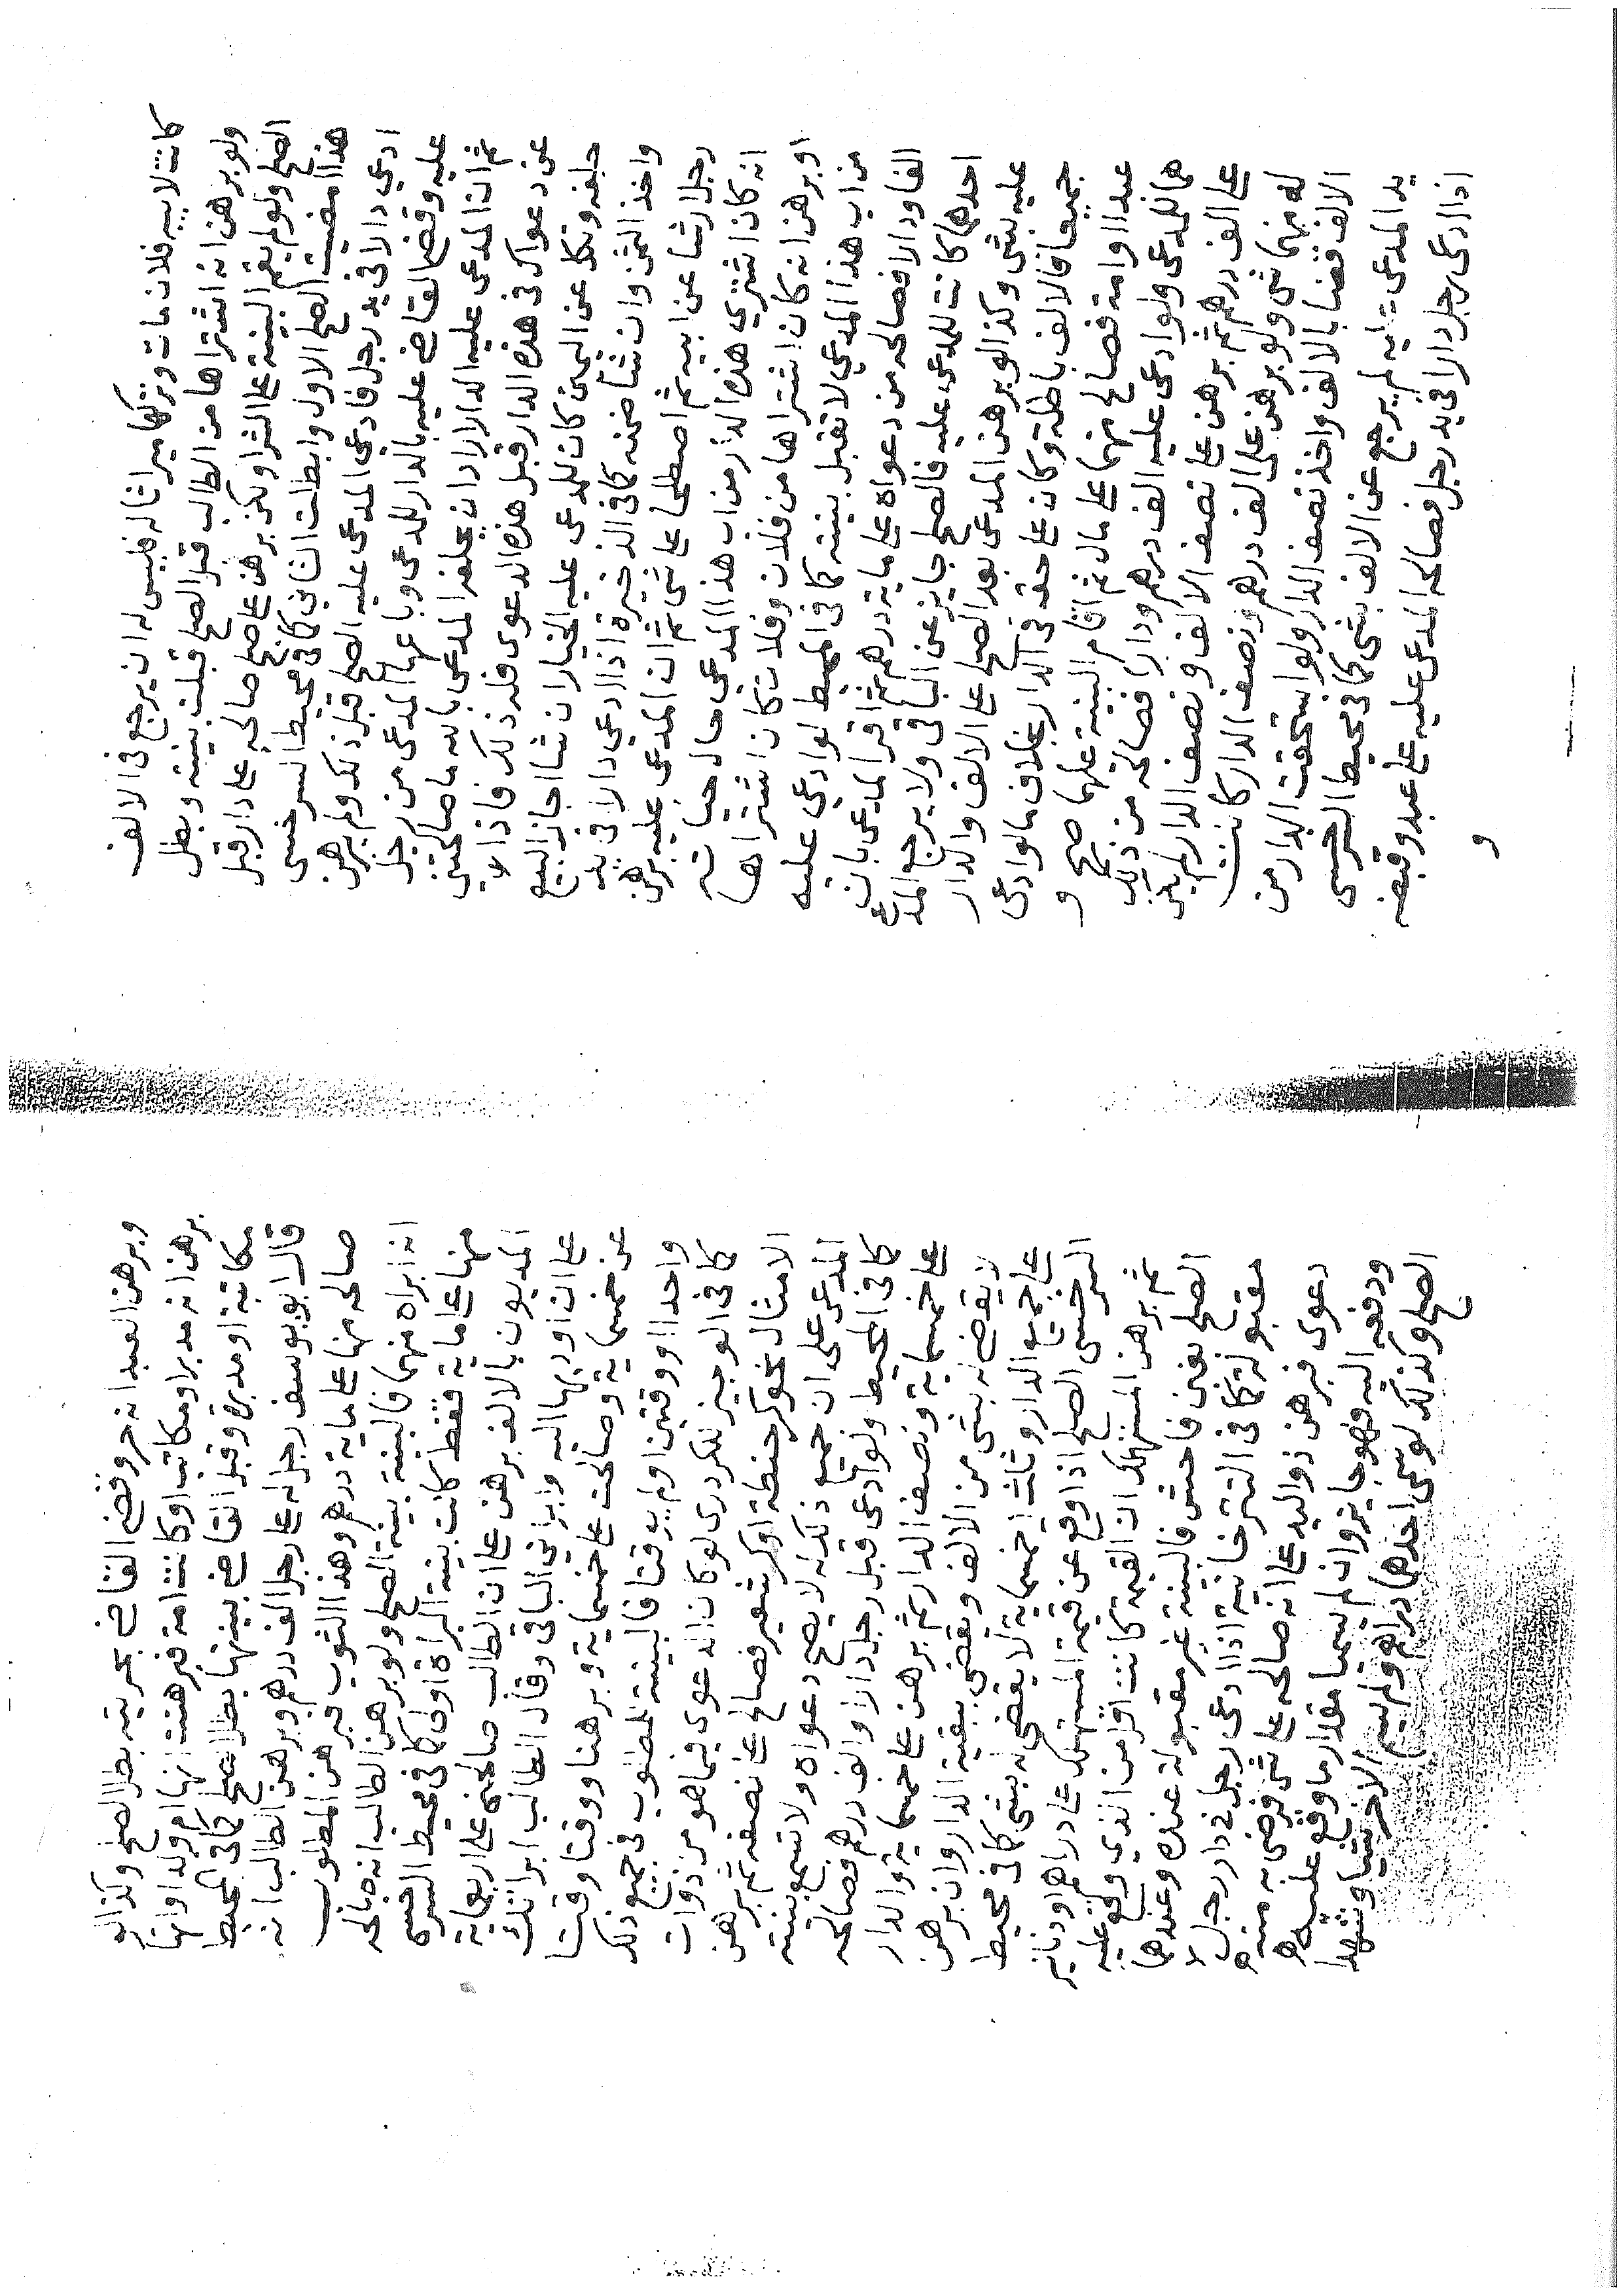 كانت لابيه فلان مات وتركها ميراثا له فليس له ان يرجع في الالف
ولو برهن انه اشتراها من الطالب قبل الصلح قبلت بينته وبطل
الصلح ولو لم يقم البينة على الشرا ولكن برهن على صلح صالحه على دار قبل
هذا امضيت الصلح الاول وابطلت الثاني كما في محيط السرخسي
ادعي دارا في يد رجل فادعى المدعى عليه الصلح قبل ذلك ولم يبرهن
عليه وقضى القاضي عليه بالدار للمدعى وباعها المدعى من رجل
ثم ان المدعى عليه الدار اراد ان يحلف المدعي بالله ما صالحتني
عن دعواك في هذه الدار قبل هذه الدعوى فله ذلك فاذا
حلفه ونكل عن اليمين كان للمدعى عليه الخيار ان شا اجاز البيع
واخذ الثمن وان شا ضمنه كما في الذخيرة اذا ادعي دارا في يد
رجل ارثا عن ابيه ثم اصطلحا على شي ثم ان المدعى عليه برهن
انه كان اشتري هذه الدار من اب هذا المدعي حال حياته
او برهن انه كان اشتراها من فلان وفلان كان اشتراها
من اب هذا المدعي لا تقبل بينته كما في المحيط لو ادعي عليه
الفا ودارا فصالحه من دعواه على ماية درهم ثم اقر المدعى بان
احدها كانت للمدعى عليه فالصلح جايز عن الباقي ولا يرجع المدعى
عليه بشي وكذا لو برهن المدعى بعد الصلح على الالف والدار
جميعا فالالف باطلة وكان على حقه في الدار بخلاف ما لو ادعى
عبدا او امة فصالح منهما على مال ثم اقام البينة عليهما صح و
هما للمدعى ولو ادعى عليه الف درهم ودارا فصالحه من ذلك
على الف درهم ثم برهن على نصف الالف ونصف الدار لم يكن
له منهما شي ولو برهن على الف درهم ونصف الدار كانت
الالف قضا بالالف واخذ نصف الدار ولو استحقت الدار من
يد المدعى لم يرجع عن الالف بشي كما في محيط السرخسي
اذا ادعى رجل دارا في يد رجل فصالحه المدعى عليه على عبد وقبضه
و
وبرهن العبد انه حر وقضى القاضي بحريته بطل الصلح وكذا لو
برهن انه مدبر او مكاتب او كانت امة فبرهنت انها ام ولد او انها
مكاتبة او مدبرة وقبل القاضي بينتها بطل الصلح كما في المحيط
قال ابو يوسف رجل له على رجل الف درهم وبرهن الطالب انه
صالحه منها على ماية درهم وهذا الثوب فبرهن المطلوب
انه ابراه منهما فالبينة بينة الصلح ولو برهن الطالب انه صالحه
منها على ماية فقط كانت بينة البراة اولى كما في محيط السرخسي
المديون بالالف برهن على ان الطالب صالحني على اربعماية
على ان اوديها اليه وابراني الباقي وقال الطالب ابراتك
عن خمسماية وصالحت على خمسماية وبرهنا ووقتا وقتا
واحدا او وقتين او لم يوقتا فالبينة للمطلوب في جميع ذلك
كما في الوجيز للكردري لو كان الدعوى فيما هو من ذوات
الامثال نحو كر حنطة او كر شعير فصالح على نصفه ثم برهن
المدعى على ان جميع ذلك له لا يصح دعواه ولا تسمع بينته
كما في المحيط ولو ادعى قبل رجل دارا والف درهم فصالحه
على خمسماية ونصف الدار ثم برهن على خمسماية والدار
لا يقضى له بشي من الالف ويقضى ببقية الدار وان برهن
على جميع الدار وثلث خمسماية لا يقضى له بشي كما في محيط
السرخسي الصلح اذا وقع عن قيمة المستهلك على دراهم او دنانير
ثم برهن المستهلك ان القيمة كانت اقل من الذي وقع عليه
الصلح بغبن فاحش فالبينة غير مقبولة عنده وعندهما
مقبولة كما في التترخانية اذا ادعى رجل في دار رجل
دعوى فبرهن ذو اليد على انه صالحه على شي فرضى به منه
ودفعه اليه فهو جايز وان لم يسما مقدار ما وقع عليه
الصلح وكذلك لو سمى احدهما دراهم ولم يسم الاخر شيا وشهدا